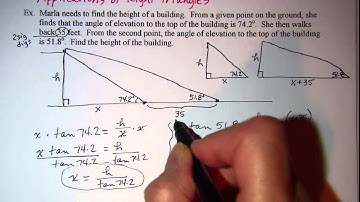 Applications of Right Triangles
Ex. Marla needs to find the height of a building. From a given point on the ground, she
finds that the angle of elevation to the top of the building is 74.2°. She then walks
back 35 feet. From the second point, the angle of elevation to the top of the building
is 51.8°. Find the height of the building.
2 sig
digs
h
74.2° 51.8°
x
35
h
74.2
x
h
51.8
x+35
x · tan 74.2 = h/x · x
x tan 74.2 = h
tan 74.2 tan 74.2
x = h/tan 74.2
tan 51.8